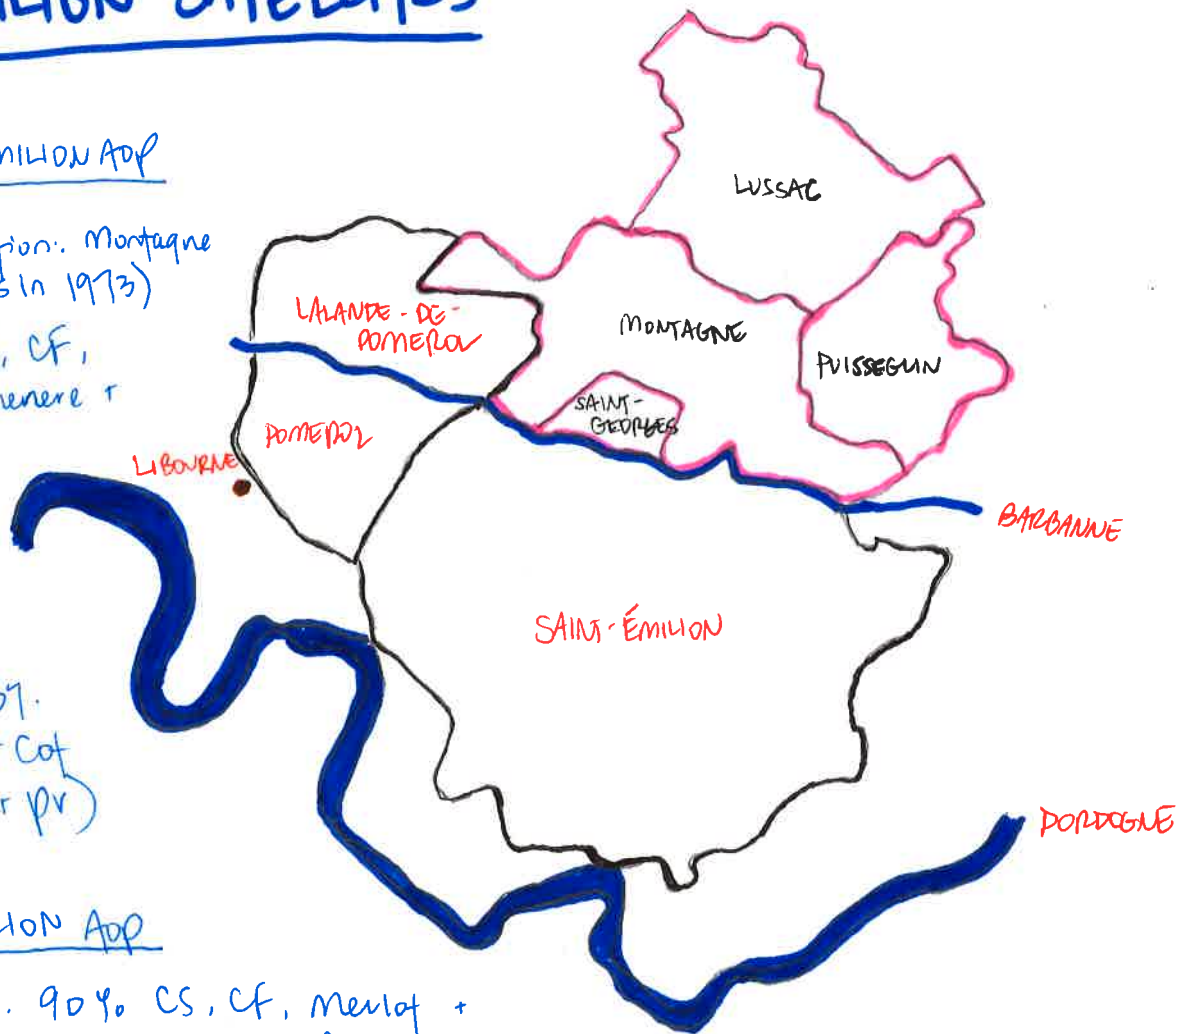 SATELLITES
AOP
Montagne
in 1973)
, CF,
+
07.
Cot
+ PV)
AOP
. 90% CS, CF, Merlot +
LUSSAC
LALANDE-DE-
POMEROL
MONTAGNE
PUISSEGUIN
SAINT-
GEORGES
POMEROL
LIBOURNE
BARBANNE
SAINT-ÉMILION
DORDOGNE